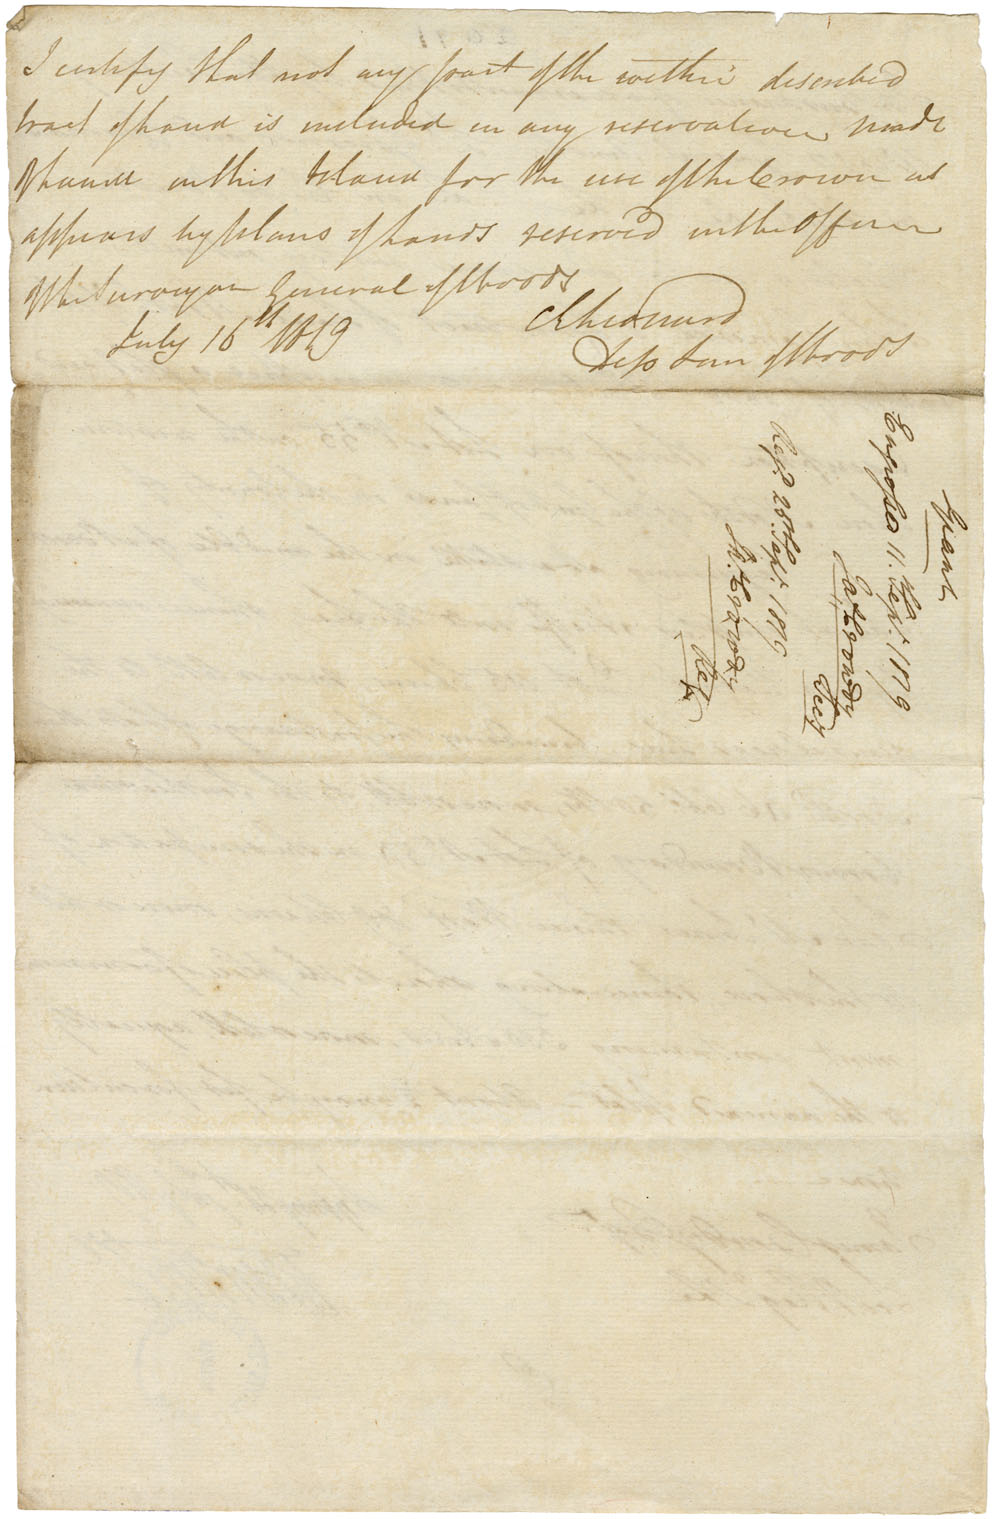 I certify that not any part of the within described
tract of Land is included in any reservation made
of Lands on this Island for the use of the Crown as
appears by plans of Lands reserved in the Office
of the Surveyor General of Woods
July 16th 1819
Dep Surr of Woods
Grant
Engrossed 11th Sept. 1819
Ja. Crowdy
Secy
Regd. 25th Sept. 1819
Ja. Crowdy
Regr